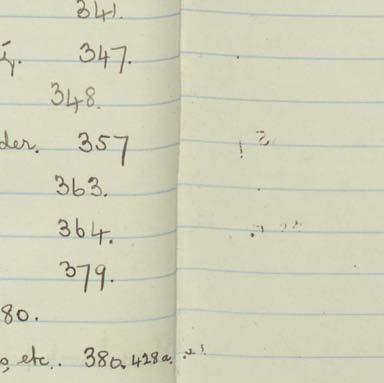 341.
347.
348.
der. 357
363.
364.
379.
80.
etc. 380. 428a.